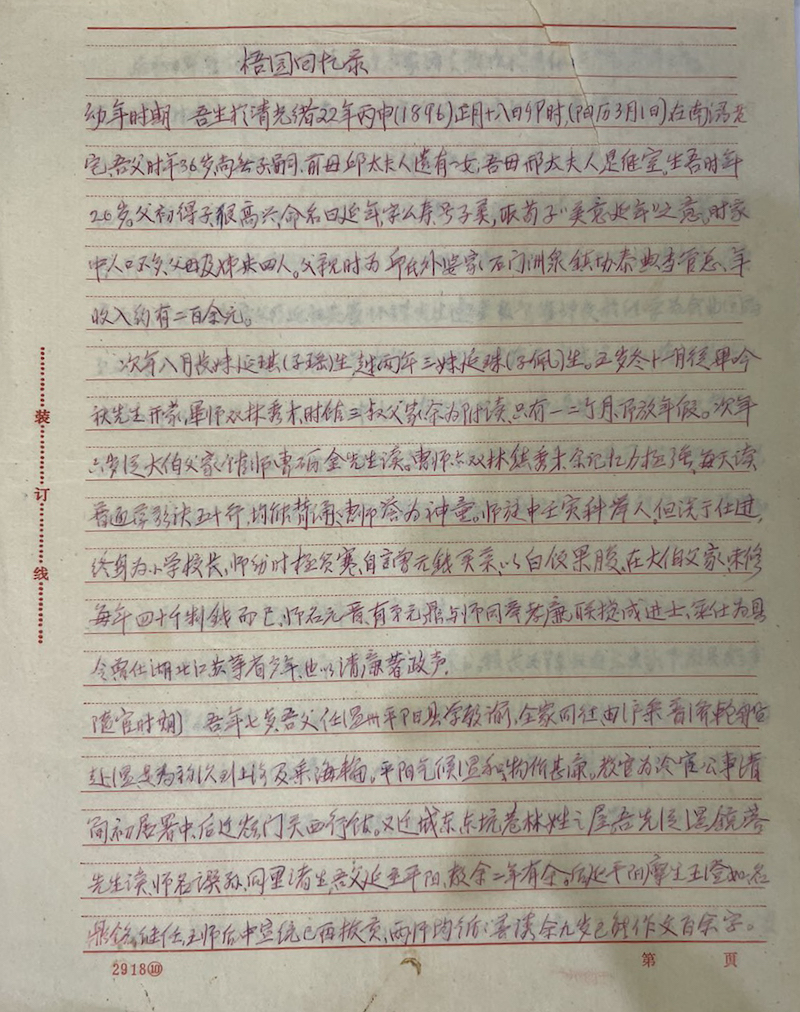 梧园回忆录
幼年时期 吾生於清光绪22年丙申(1896)正月十八日卯时,(阳历3月1日)在南浔老
宅,吾父时年36岁,尚无子嗣,前母邱太夫人遗有一女,吾母邢太夫人是继室,生吾时年
26岁。父初得子狠高兴,命名曰延年,字公寿,号子美,取荀子“美意延年”之意。时家
中人口不多,父母及姊共四人。父亲时为邱氏外婆家石门洲泉镇协泰典当管总,年
收入约有二百余元。
次年八月故妹延琪(子瑶)生,越两年三妹延珠(子佩)生。五岁冬十一月从毕吟
秋先生开蒙,毕师双林秀才,时馆三叔父家,余为附读,只有一二个月,即放年假。次年
六岁从大伯父家馆师曹砺金先生读。曹师亦双林镇秀才,余记忆力极强,每天读
普通 五十行,均能背诵,曹师誉为神童。师旋中壬寅科举人,但淡于仕进,
终身为小学校长,师幼时极贫寒,自言曾无钱买菜,以白饭果腹,在大伯父家,束修
每年四十千制钱而已,师名元晋,有弟元鼎与师同举孝廉,联捷成进士,出仕为县
令,曾仕湖北江苏等省多年,也以清廉著政声。
随宦时期 吾年七岁,吾父任温州平阳县学教谕,全家同往,由沪乘普济轮船
赴温,是为初次到上海及乘海轮。平阳气候温和,物价甚廉。教官为冷官,公事清
简,初居署中,后迁 门头西行馆。又迁城东东坑巷林姓之屋。吾先从温镜蓉
先生读,师名 孙,同里诸生,吾父延至平阳,教余二年有余。后延平阳廪生王澄如,名
鼎铭,继任,王师后中宣统己酉拔贡,两师均循循善读,余九岁已能作文百余字。
装订线
2918⑩
第 頁